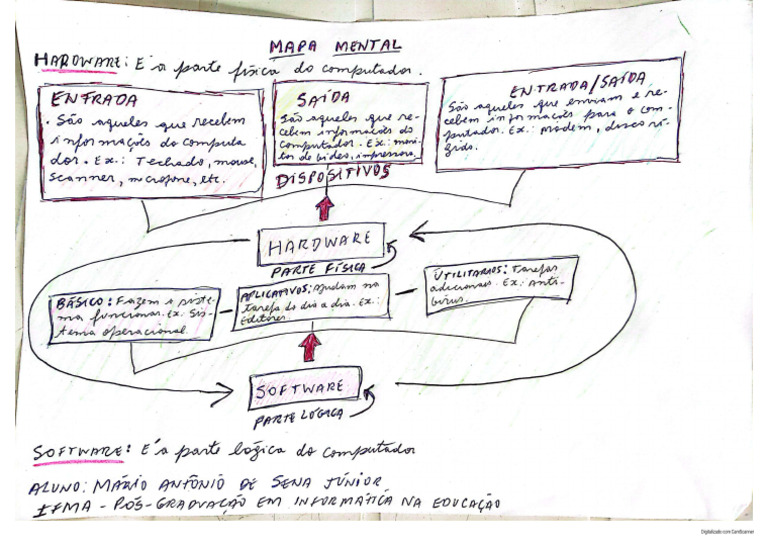 MAPA MENTAL
HARDWARE: É a parte física do computador.
ENTRADA
. São aqueles que recebem
informações do computa
dor. Ex.: Teclado, mouse,
scanner, microfone, etc.
SAÍDA
São aqueles que re-
cebem informações do
computador. Ex: moni-
tor de vídeo, impressora.
ENTRADA/SAÍDA
São aqueles que enviam e re-
cebem informações para o com-
putador. Ex.: modem, disco rí-
gido.
DISPOSITIVOS
HARDWARE
PARTE FÍSICA
BÁSICO: Fazem o siste-
ma funcionar. Ex: Sis-
tema operacional.
APLICATIVOS: Ajudam na
tarefa do dia a dia. Ex.:
Editores.
UTILITARIOS: Tarefas
adicionais. Ex: Anti-
vírus.
SOFTWARE
PARTE LÓGICA
SOFTWARE: É a parte lógica do computador
ALUNO: MÁRIO ANTÔNIO DE SENA JÚNIOR
IFMA - PÓS-GRADUAÇÃO EM INFORMÁTICA NA EDUCAÇÃO
Digitalizado com CamScanner